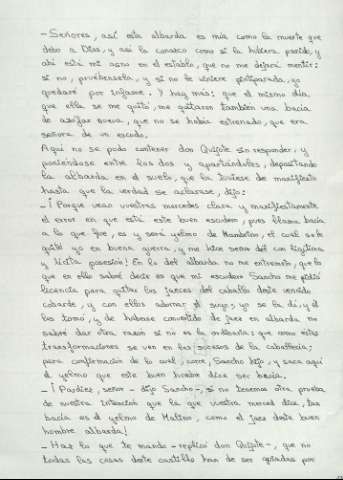 - Señores, así esta albarda es mía como la muerte que
debo a Dios, y así la conozco como si la hubiera parido, y
ahí está mi asno en el establo, que no me dejará mentir:
si no, pruébensela, y si no le viniere pintiparada, yo
quedaré por infame. Y hay más: que el mismo día
que ella se me quitó, me quitaron también una bacía
de azófar nueva, que no se había estrenado, que era
señora de un escudo.
Aquí no se pudo contener don Quijote sin responder, y
poniéndose entre los dos y apartándoles, depositando
la albarda en el suelo, que la tuviese de manifiesto
hasta que la verdad se aclarase, dijo:
- ¡Porque vean vuestras mercedes clara y manifiestamente
el error en que está este buen escudero, pues llama bacía
a lo que fue, es y será yelmo de Mambrino, el cual se le
quité yo en buena guerra, y me hice señor dél con legítima
y lícita posesión! En lo del albarda no me entremeto, que lo
que en ello sabré decir es que mi escudero Sancho me pidió
licencia para quitar los jaeces del caballo deste vencido
cobarde, y con ellos adornar el suyo; yo se la di, y él
los tomó, y de haberse convertido de jaez en albarda no
sabré dar otra razón si no es la ordinaria: que como estas
transformaciones se ven en los sucesos de la caballería;
para confirmación de lo cual, corre, Sancho hijo, y saca aquí
el yelmo que este buen hombre dice ser bacía.
- ¡Pardiez, señor - dijo Sancho -, si no tenemos otra prueba
de nuestra intención que la que vuestra merced dice, tan
bacía es el yelmo de Malino, como el jaez deste buen
hombre albarda!
- Haz lo que te mando - replicó don Quijote -, que no
todas las cosas deste castillo han de ser guiadas por